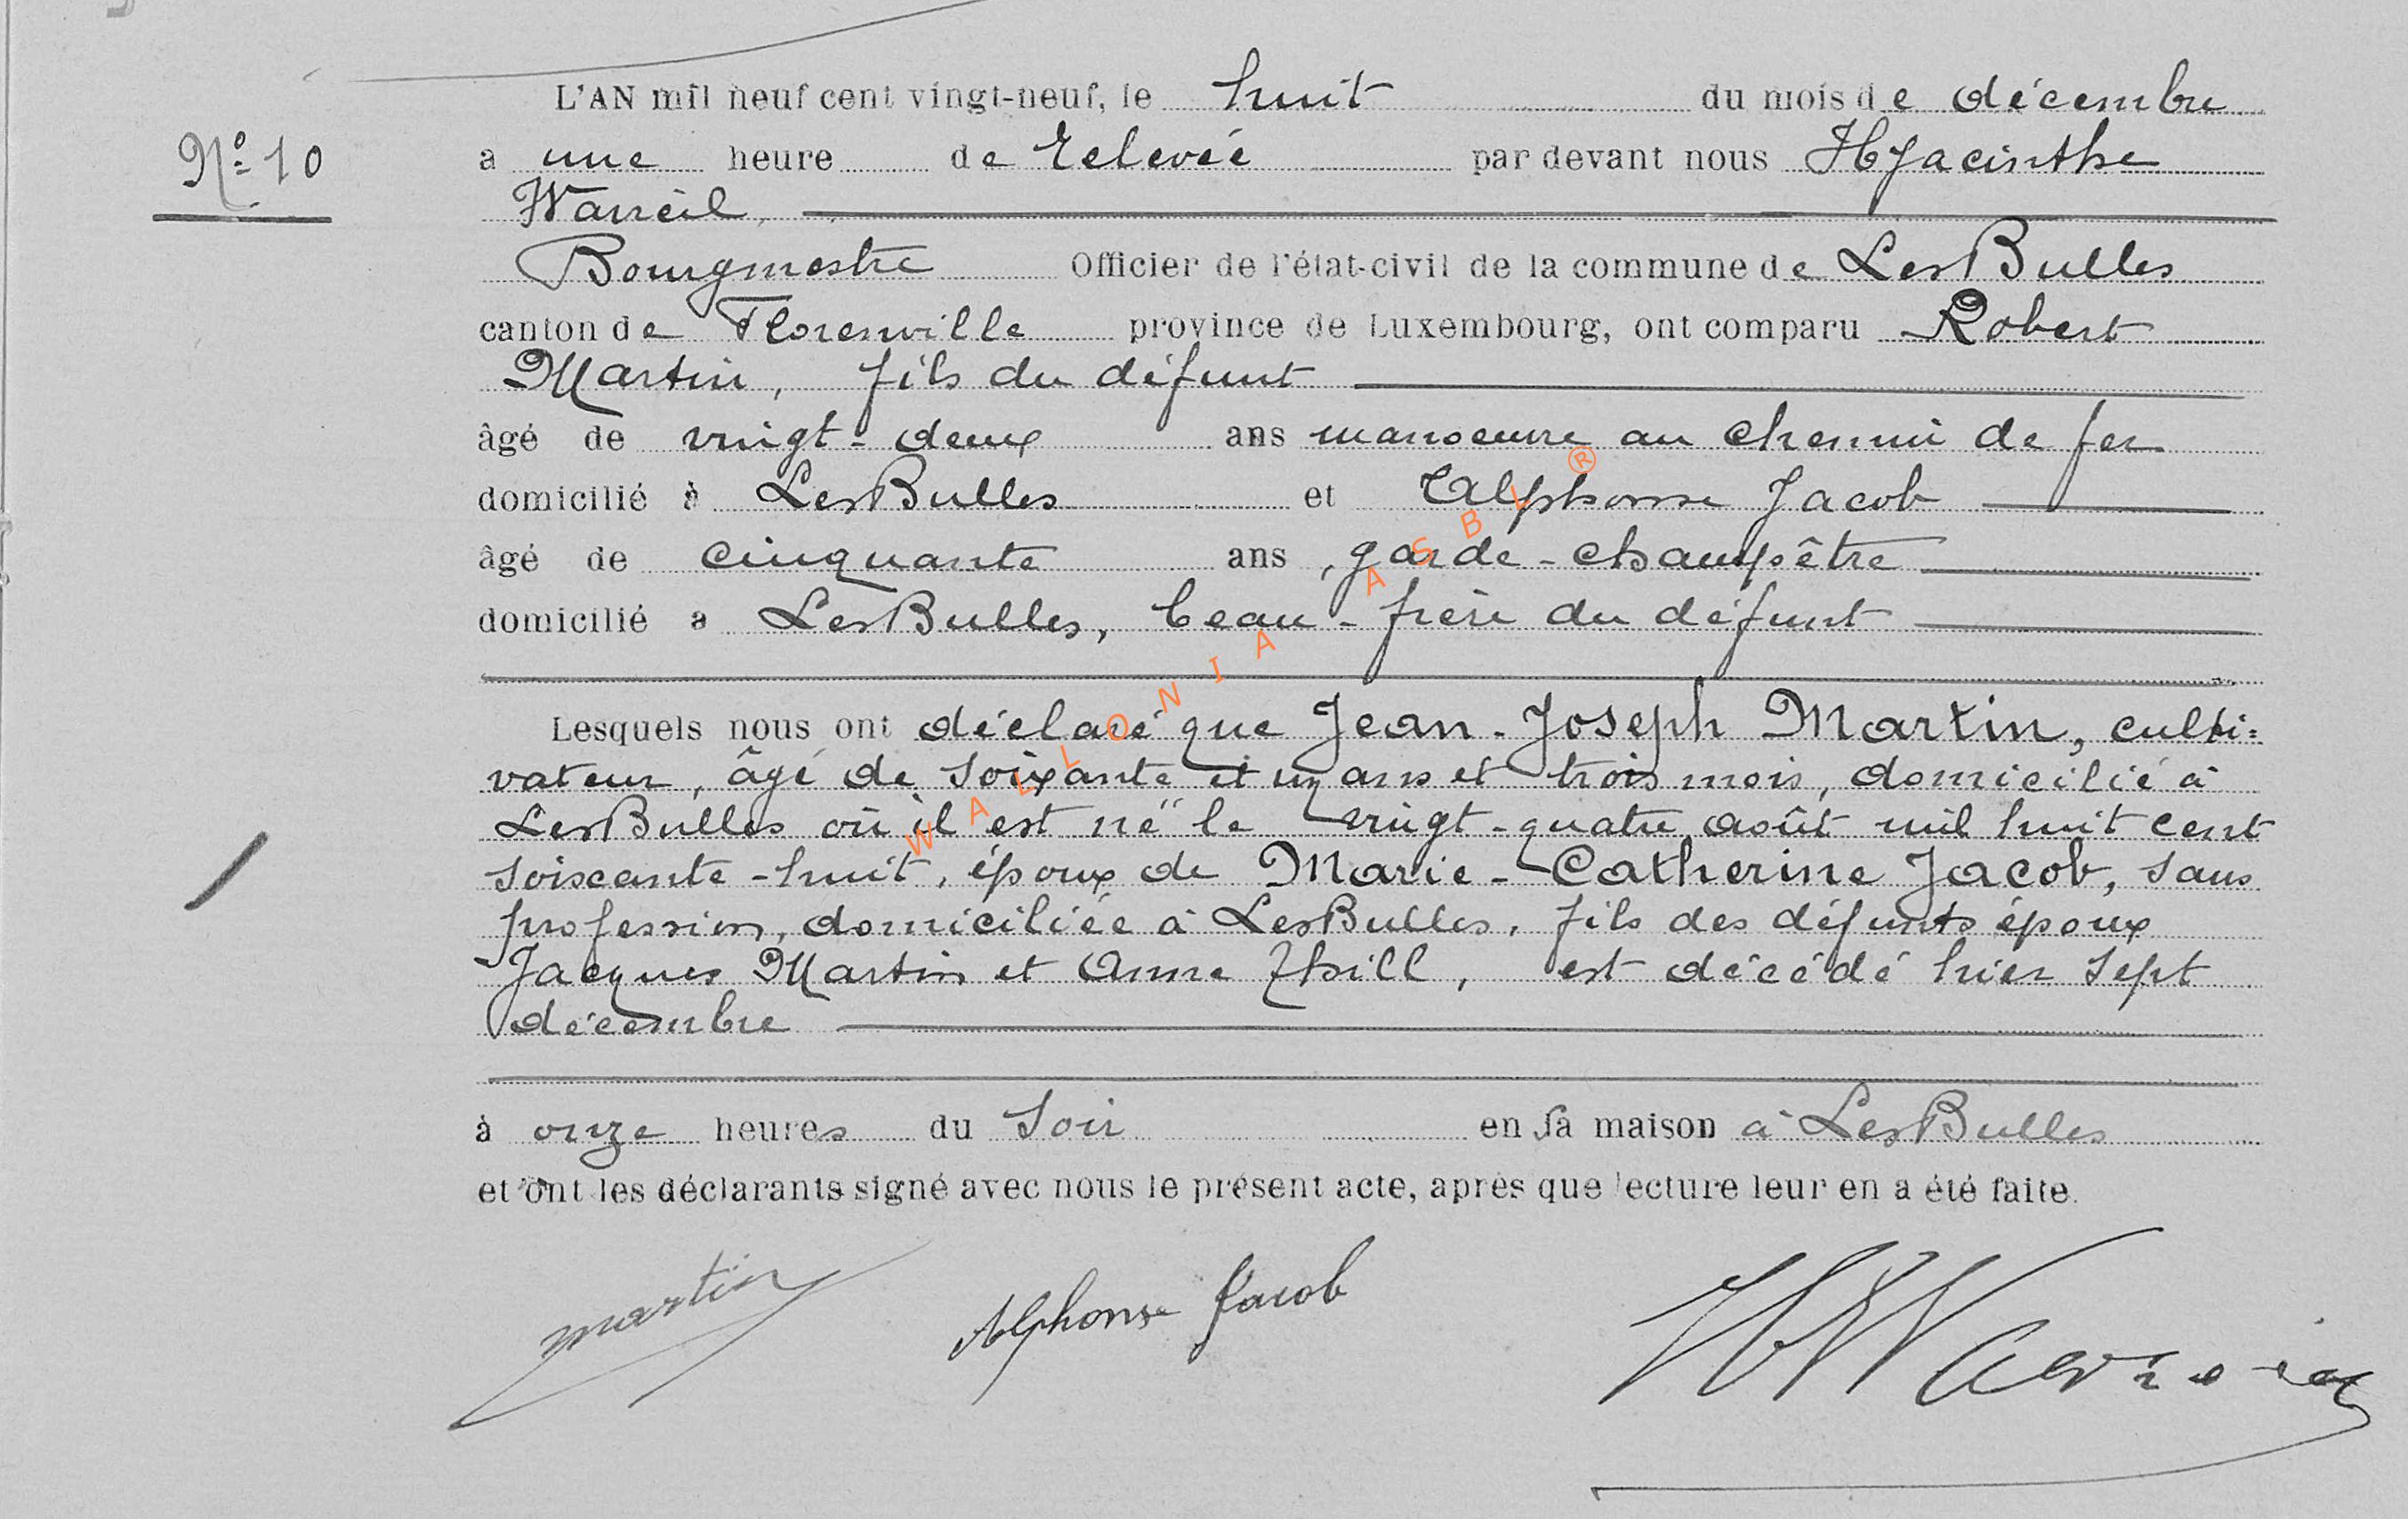 L'AN mil neuf cent vingt-neuf, le huit du mois de décembre
N° 10
a une heure de relevée par devant nous Hyacinthe
Warreil,
Bourgmestre Officier de l'état-civil de la commune de LesBulles
canton de Florenville province de Luxembourg, ont comparu Robert
Martin, fils du défunt
âgé de vingt-deux ans manoeuvre au chemin de fer
domicilié à LesBulles et Alphonse Jacob
âgé de cinquante ans, garde-champêtre
domicilié a LesBulles, beau-frère du défunt
Lesquels nous ont déclaré que Jean-Joseph Martin, culti=
vateur, âgé de soixante et un ans et trois mois, domicilié à
LesBulles où il est né le vingt-quatre août mil huit cent
soixante-huit, époux de Marie-Catherine Jacob, sans
profession, domiciliée à LesBulles, fils des défunts époux
Jacques Martin et Anne Thill, est décédé hier sept
décembre
à onze heures du soir en sa maison à LesBulles
et ont les déclarants signé avec nous le présent acte, après que lecture leur en a été faite.
martin Alphonse Jacob
WALLONIA ASBL ®